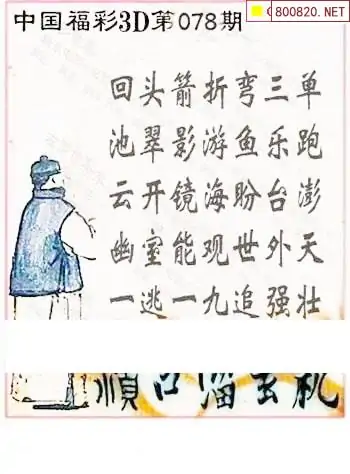 中国福彩3D第078期
800820.NET
回头箭折弯三单
池翠影游鱼乐跑
云开镜海盼台澎
幽室能观世外天
一逃一九追强壮